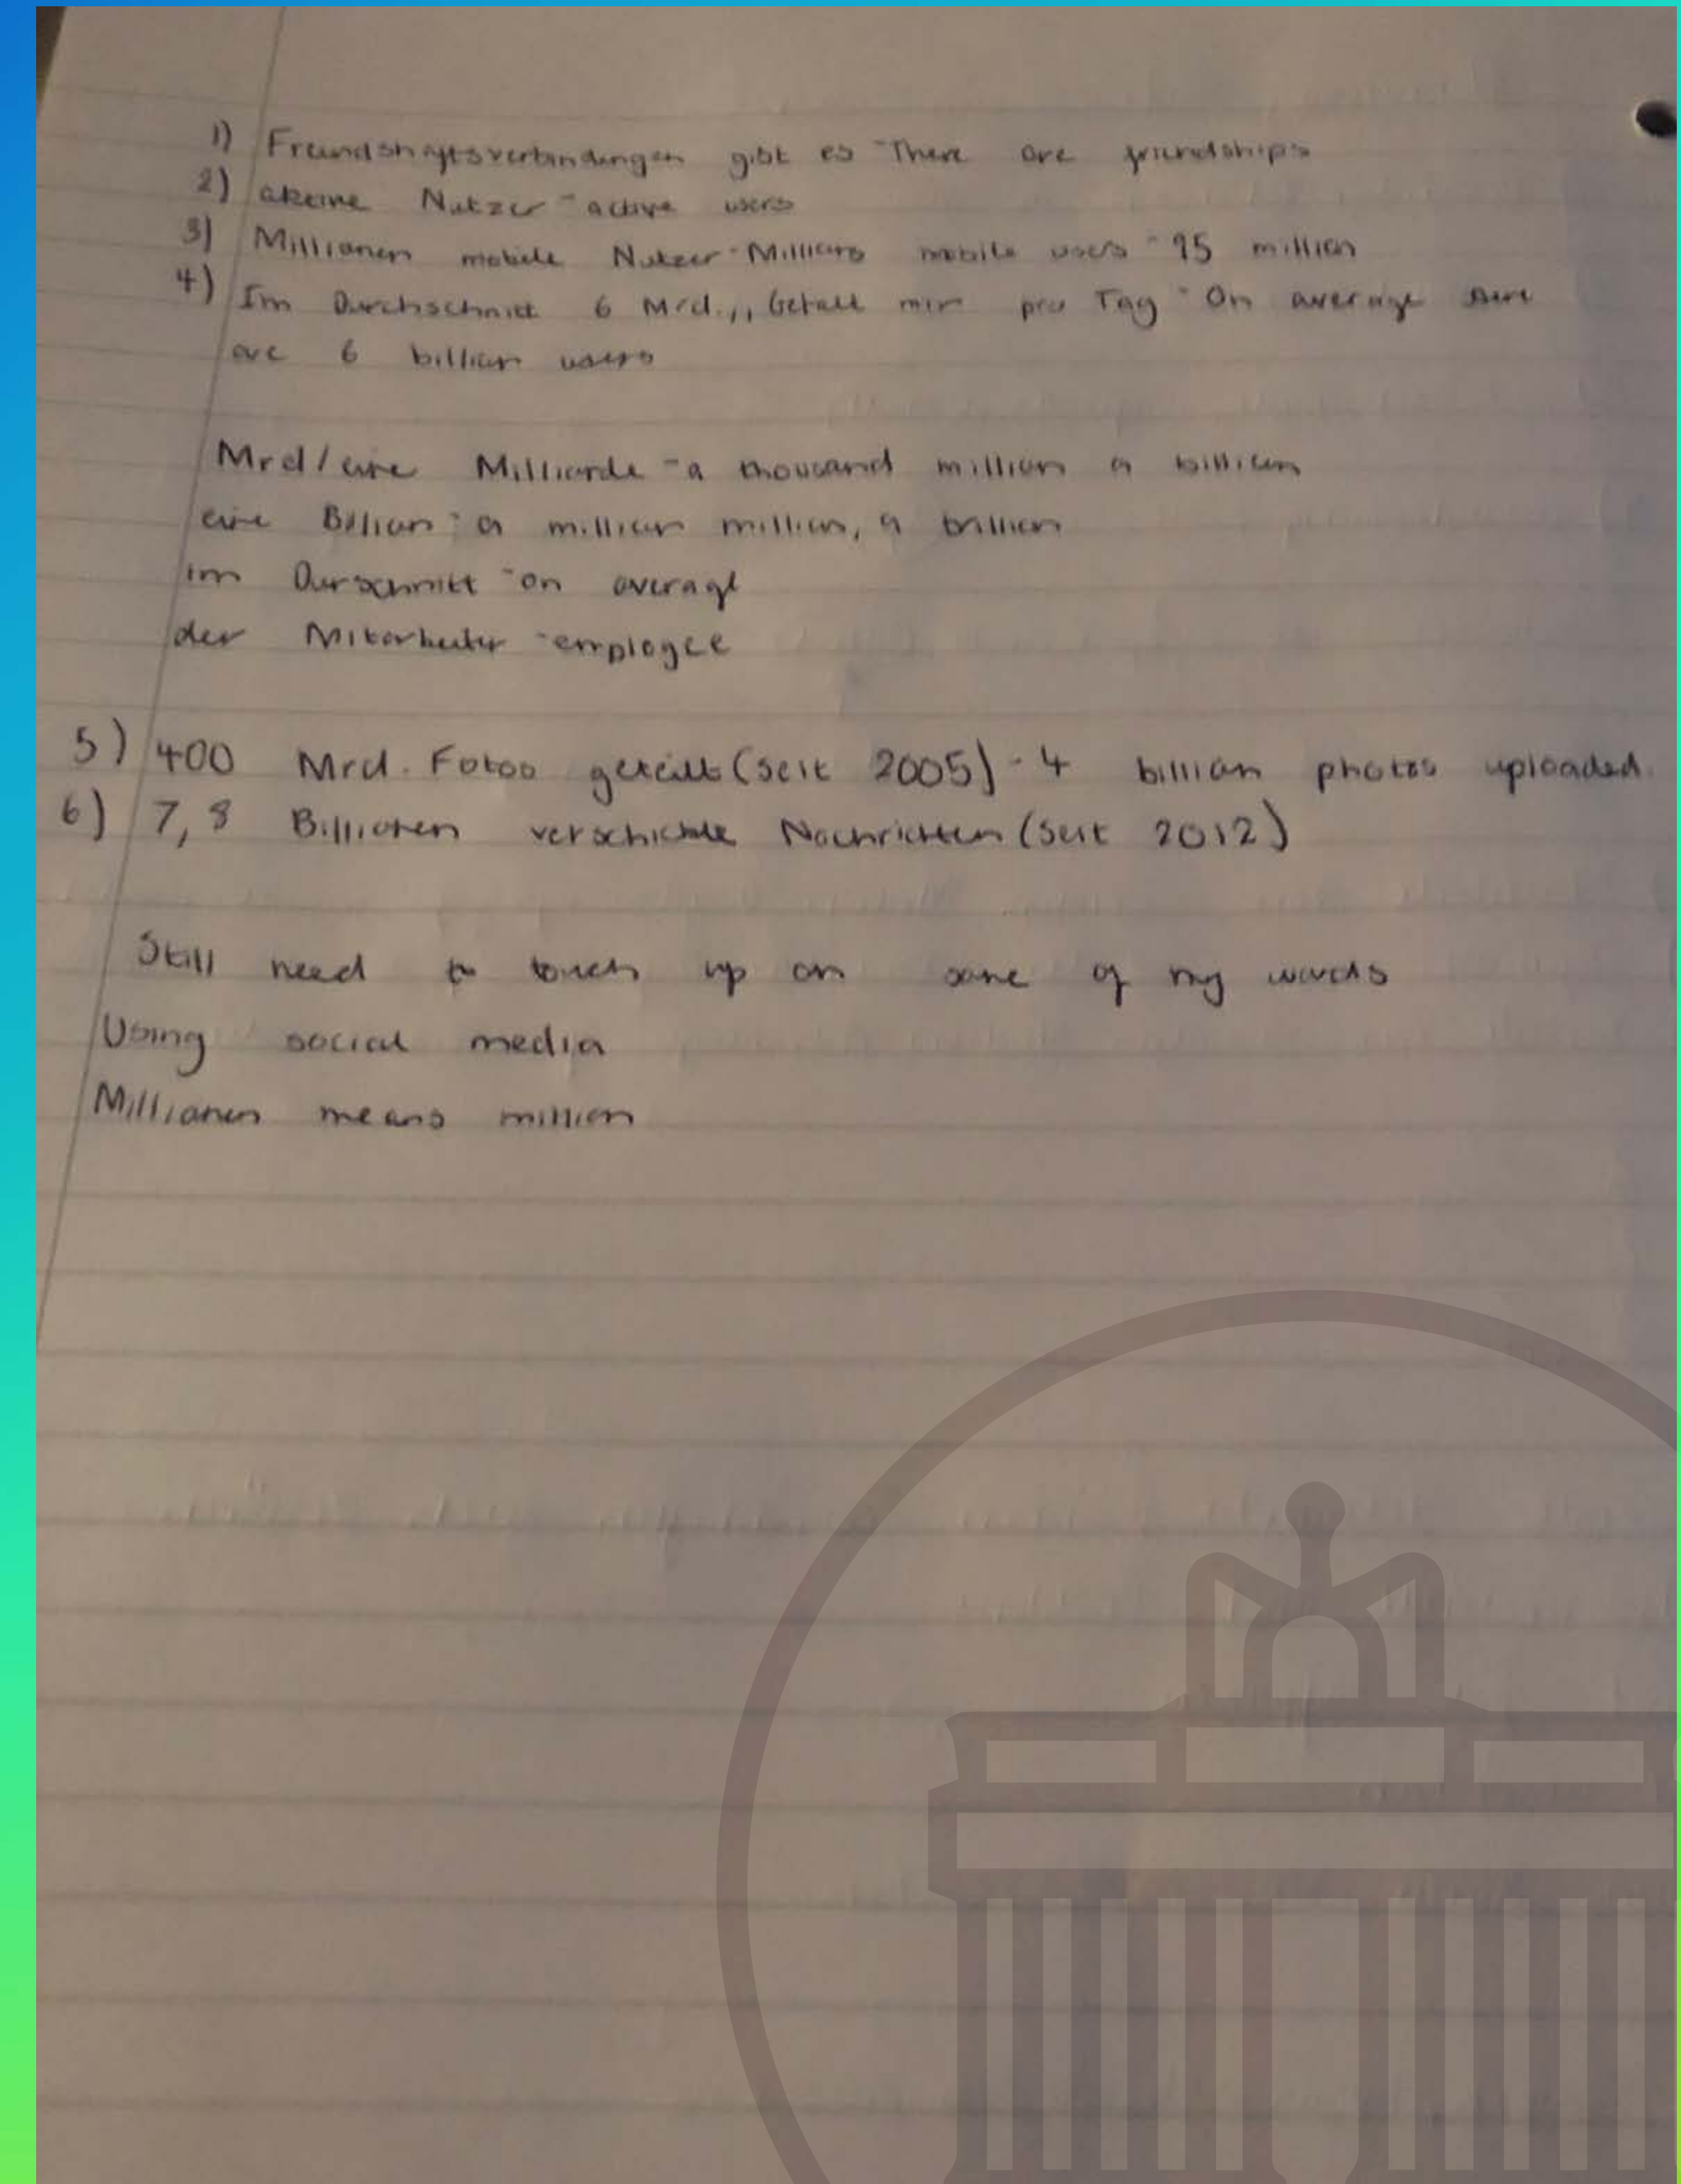 1) Freundshaftsverbindungen gibt es - There are friendships
2) akeine Nutzer - active users
3) Millionen mobile Nutzer - Millions mobile users - 95 million
4) Im Durchschnitt 6 Mrd.,, Gefall mir pro Tag - On average there
are 6 billion users
Mrd/eine Milliarde - a thousand million a billion
eine Billion - a million million, a trillion
im Durschnitt - on average
der Mitarbeiter - employee
5) 400 Mrd. Fotos geteilt (seit 2005) - 4 billion photos uploaded.
6) 7,8 Billionen verschickte Nachrichten (seit 2012)
Still need to touch up on some of my words
Using social media
Millionen means million